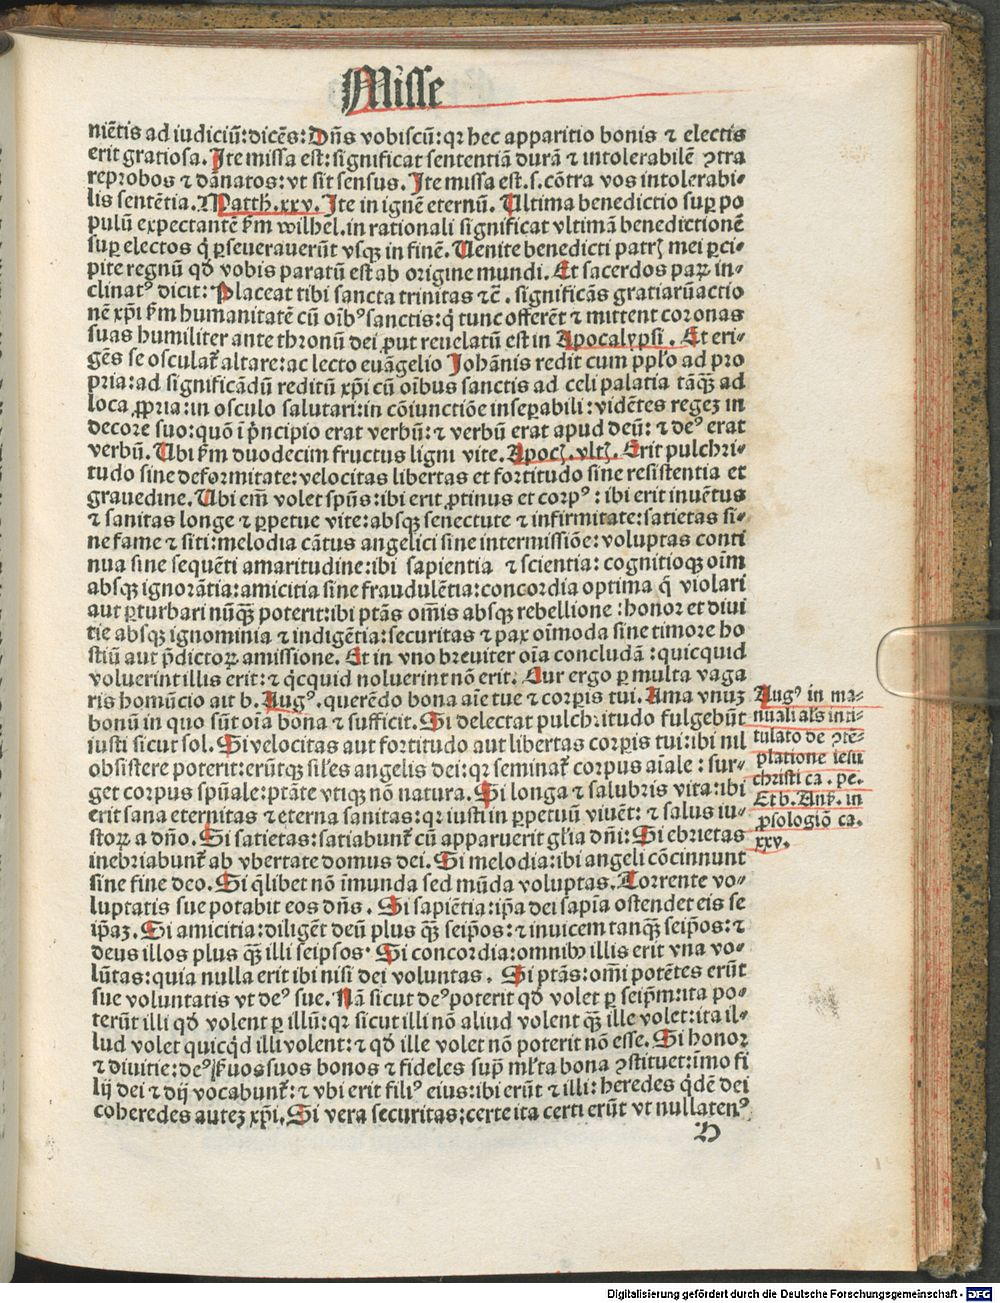 Misse
niẽtis ad iudiciũ:dicẽs:Dñs vobiscũ:qꝛ hec apparitio bonis ⁊ electis
erit gratiosa.Ite missa est:significat sententiã durã ⁊ intolerabilẽ ꝯtra
reprobos ⁊ dãnatos:vt sit sensus.Ite missa est.s.cõtra vos intolerabi-
lis sentẽtia.Matth.xxv.Ite in ignẽ eternũ.Ultima benedictio suꝑ po
pulũ expectantẽ ẜm wilhel.in rationali significat vltimã benedictionẽ
suꝑ electos q̇ ꝑseuerauerũt vsqꝫ in finẽ.Uenite benedicti patrꝭ mei ꝑci-
pite regnũ qđ vobis paratũ est ab origine mundi.Et sacerdos paꝝ in-
clinatꝰ dicit:Placeat tibi sancta trinitas ⁊c̃.significãs gratiarũ actio
nẽ xp̃i ẜm humanitatẽ cũ oĩbꝰ sanctis:q̇ tunc offerẽt ⁊ mittent coronas
suas humiliter ante thronũ dei ꝓut reuelatũ est in Apocalypsi.Et eri-
gẽs se osculat᷑ altare:ac lecto euãgelio Johãnis redit cum ppl̃o ad pro
pria:ad significãdũ reditũ xp̃i cũ oĩbus sanctis ad celi palatia tãqꝫ̃ ad
loca ꝓpria:in osculo salutari:in cõiunctiõe inseꝑabili:vidẽtes regeꝫ in
decore suo:quõ ĩ pͥncipio erat verbũ:⁊ verbũ erat apud deũ:⁊ deꝰ erat
verbũ.Ubi ẜm duodecim fructus ligni vite.Apocꝭ.vltꝭ.Erit pulchri-
tudo sine deformitate:velocitas libertas et fortitudo sine resistentia et
grauedine.Ubi em̃ volet spũs:ibi erit ꝓtinus et corpꝰ:ibi erit iuuẽtus
⁊ sanitas longe ⁊ ꝑpetue vite:absqꝫ senectute ⁊ infirmitate:satietas si-
ne fame ⁊ siti:melodia cãtus angelici sine intermissiõe:voluptas conti
nua sine sequẽti amaritudine:ibi sapientia ⁊ scientia:cognitioqꝫ oĩm
absqꝫ ignorãtia:amicitia sine fraudulẽtia:concordia optima q̃ violari
aut ꝑturbari nũqꝫ̃ poterit:ibi ptãs om̃is absqꝫ rebellione:honor et diui
tie absqꝫ ignominia ⁊ indigẽtia:securitas ⁊ pax oĩmoda sine timore ho
stiũ aut p̃dictoꝝ amissione.Et in vno breuiter oĩa concludã:quicquid
voluerint illis erit:⁊ qͥcquid noluerint nõ erit.Cur ergo ꝑ multa vaga
ris homũcio ait b.Augꝰ.querẽdo bona aĩe tue ⁊ corꝑis tui.Ama vnuꝫ
bonũ in quo sũt oĩa bona ⁊ sufficit.Si delectat pulchritudo fulgebũt
iusti sicut sol.Si velocitas aut fortitudo aut libertas corꝑis tui:ibi nil
obsistere poterit:erũtqꝫ sil̃es angelis dei:qꝛ seminat᷑ corpus aĩale:sur-
get corpus spũale:ptãte vtiqꝫ nõ natura.Si longa ⁊ salubris vita:ibi
erit sana eternitas ⁊ eterna sanitas:qꝛ iusti in ꝑpetuũ viuẽt:⁊ salus iu-
stoꝝ a dño.Si satietas:satiabunt᷑ cũ apparuerit gl̃ia dñi:Si ebrietas
inebriabunt᷑ ab vbertate domus dei.Si melodia:ibi angeli cõcinnunt
sine fine deo.Si q̃libet nõ ĩmunda sed mũda voluptas.Torrente vo-
luptatis sue potabit eos dñs.Si sapiẽtia:ip̃a dei sapĩa ostendet eis se
ip̃aꝫ.Si amicitia:diligẽt deũ plus qꝫ̃ seip̃os:⁊ inuicem tanqꝫ̃ seip̃os:⁊
deus illos plus qꝫ̃ illi seipsos.Si concordia:omnibꝰ illis erit vna vo-
lũtas:quia nulla erit ibi nisi dei voluntas.Si ptãs:om̃i potẽtes erũt
sue voluntatis vt deꝰ sue.Nã sicut deꝰ poterit qđ volet ꝑ seip̃m:ita po-
terũt illi qđ volent ꝑ illũ:qꝛ sicut illi nõ aliud volent qꝫ̃ ille volet:ita il-
lud volet quicqͥd illi volent:⁊ qđ ille volet nõ poterit nõ esse.Si honor
⁊ diuitie:deꝰ ẜuos suos bonos ⁊ fideles sup̃ ml̃ta bona ꝯstituet:ĩmo fi
lij dei ⁊ dij vocabunt᷑:⁊ vbi erit filiꝰ eius:ibi erũt ⁊ illi:heredes qͥdẽ dei
coheredes auteꝫ xp̃i.Si vera securitas:certe ita certi erũt vt nullatenꝰ
H
Augꝰ in ma-
nuali al̃s inti-
tulato de ꝯtẽ-
platione iesu
christi ca.pe.
Et b.Anẜ.in
ꝓsologiõ ca.
xxv.
Digitalisierung gefördert durch die Deutsche Forschungsgemeinschaft - DFG